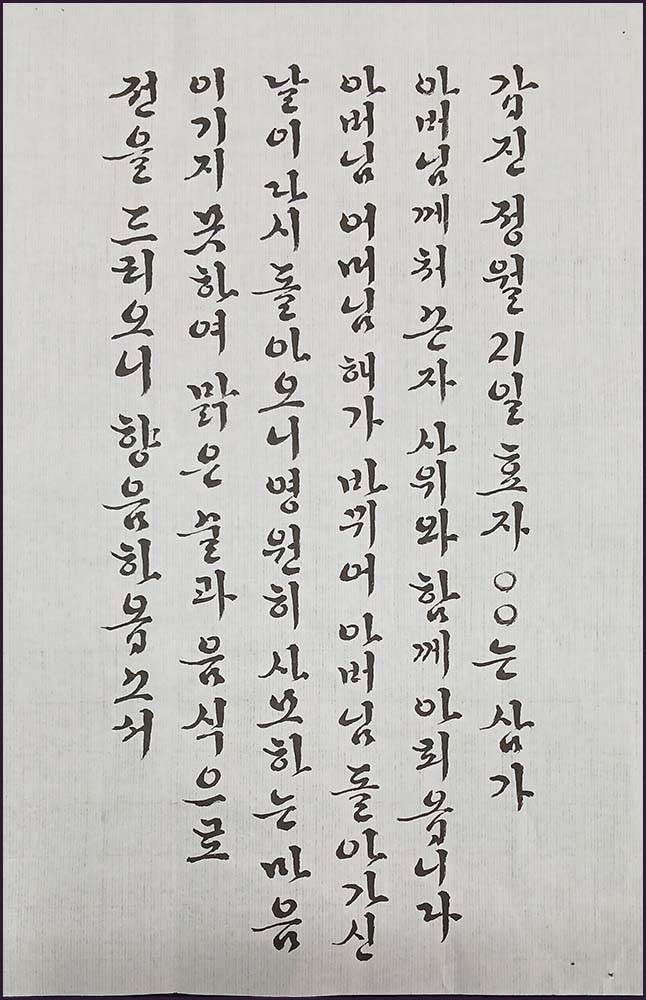 갑진 정월 21일 효자 ○○는 삼가
아버님께 처 큰자 사위와 함께 아뢰옵니다
아버님 어머님 해가 바뀌어 아버님 돌아가신
날이 다시 돌아오니 영원히 사모하는 마음
이기지 못하여 맑은 술과 음식으로
전을 드리오니 향음하옵소서